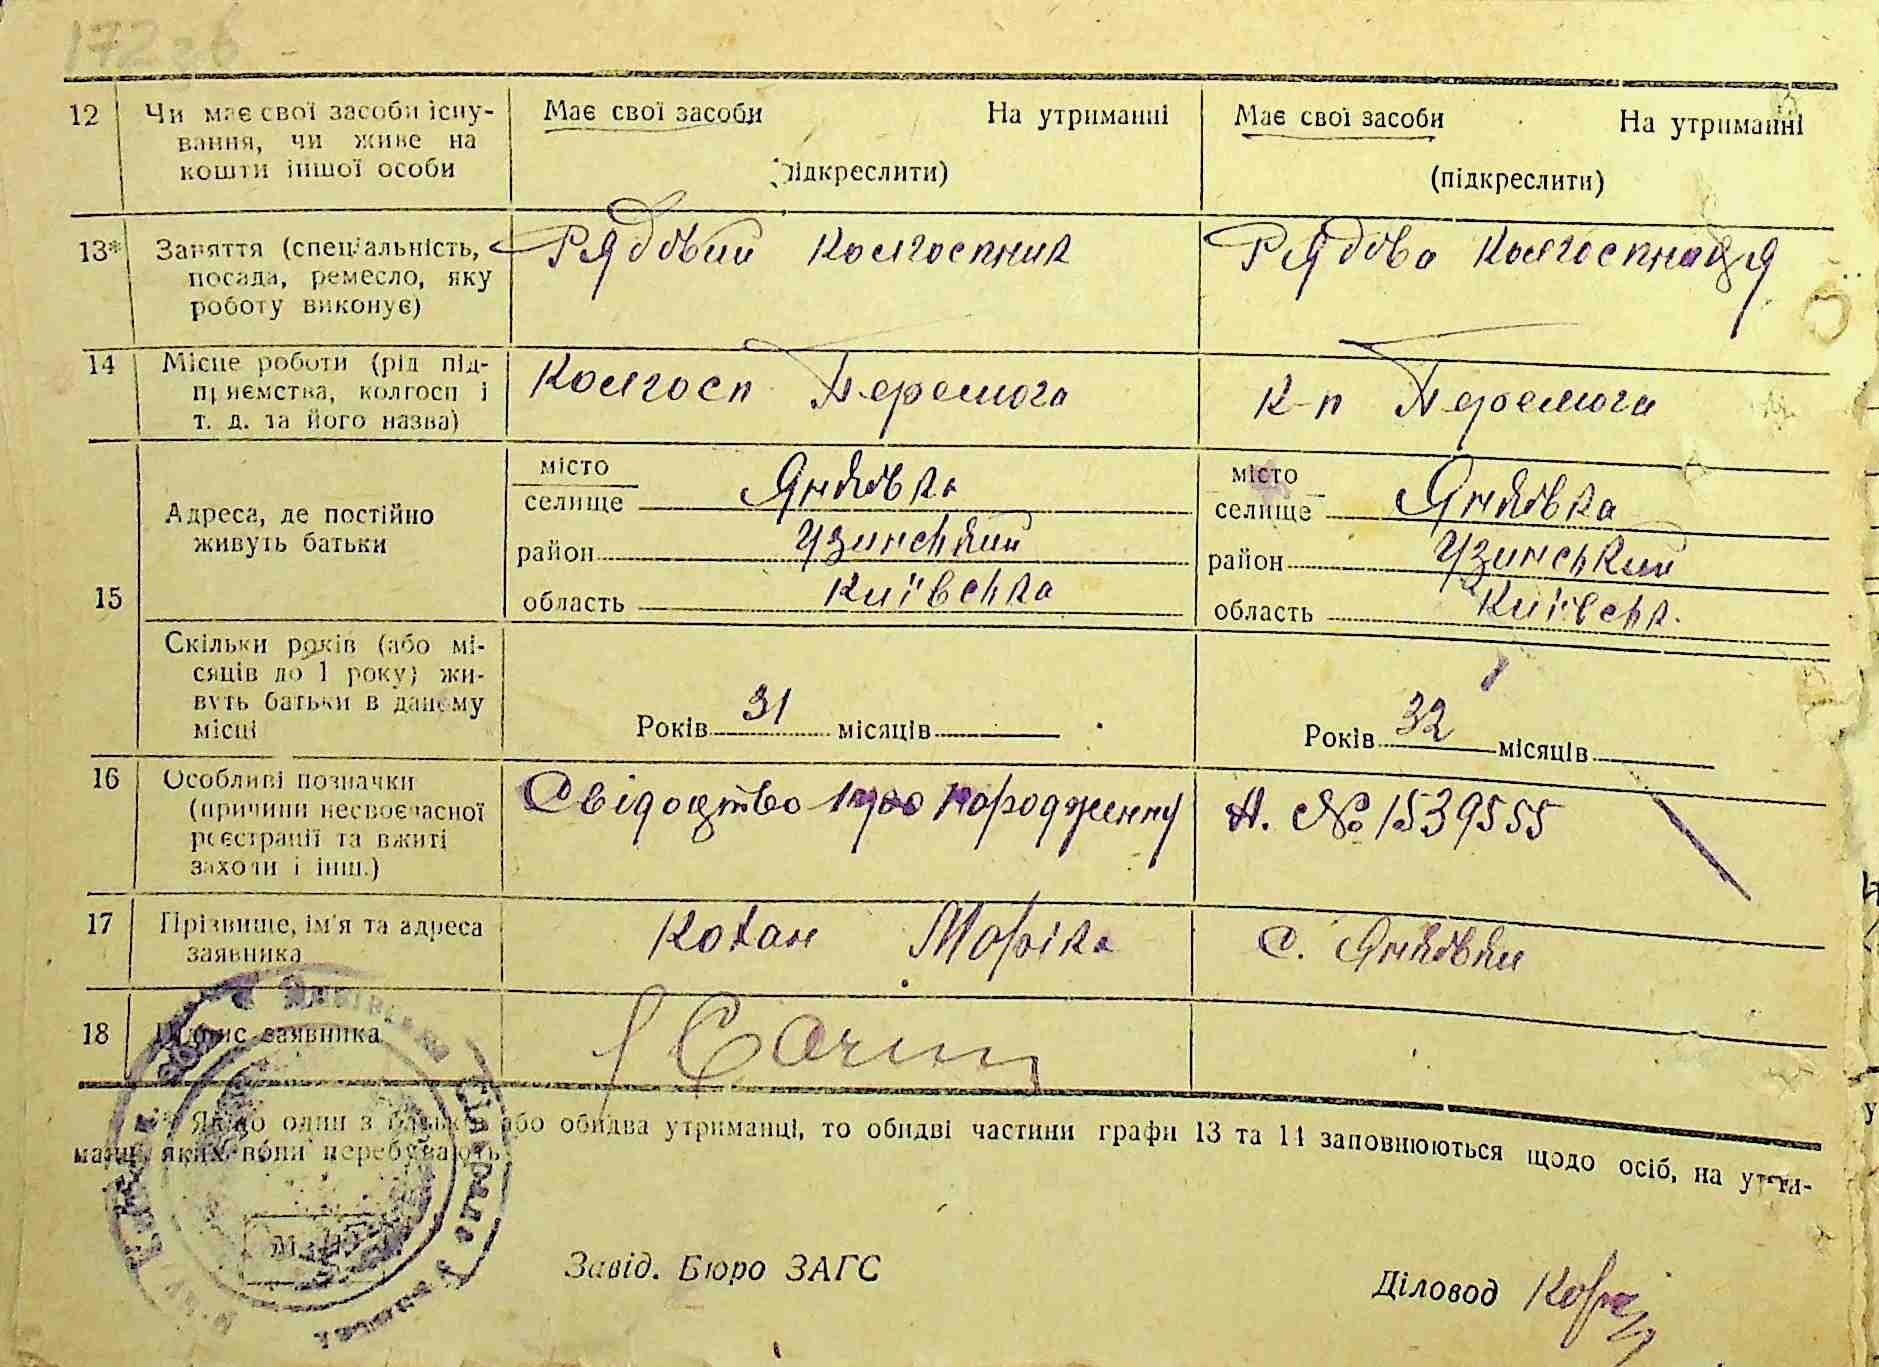 172зв
12 Чи має свої засоби існу-
вання, чи живе на
кошти іншої особи
Має свої засоби На утриманні
(підкреслити)
Має свої засоби На утриманні
(підкреслити)
13* Заняття (спеціальність,
посада, ремесло, яку
роботу виконує)
Рядовий колгоспник
Рядова колгоспниця
14 Місце роботи (рід під-
приємства, колгосп і
т. д. та його назва)
Колгосп Перемога
к-п Перемога
15 Адреса, де постійно
живуть батьки
місто
селище Янківка
район Узинський
область Київська
місто
селище Янківка
район Узинський
область Київськ.
Скільки років (або мі-
сяців до 1 року) жи-
вуть батьки в даному
місці
Років 31 місяців
Років 32 місяців
16 Особливі позначки
(причини несвоєчасної
реєстрації та вжиті
заходи і інш.)
Свідоцтво про народженну
А. № 1539555
17 Прізвище, ім'я та адреса
заявника
Кохан Марфіка
с. Янківки
18 Підпис заявника
* Якщо один з батьків або обидва утриманці, то обидві частини графи 13 та 14 заповнюються щодо осіб, на утри-
манні яких вони перебувають.
Завід. Бюро ЗАГС
Діловод